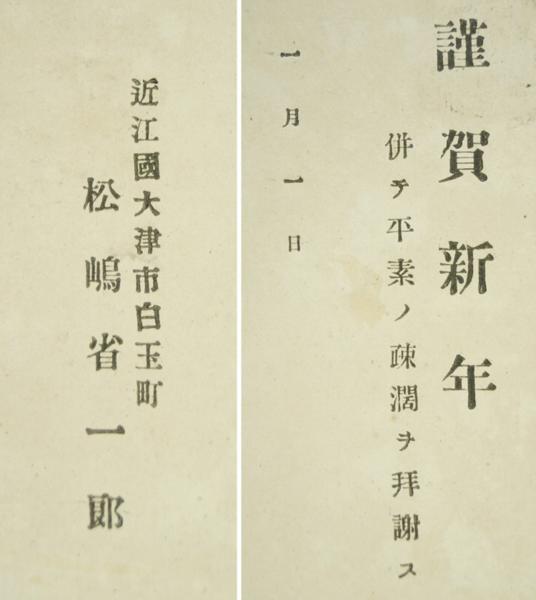 謹賀新年
併テ平素ノ疎濶ヲ拜謝ス
一月一日
近江國大津市白玉町
松嶋省一郎